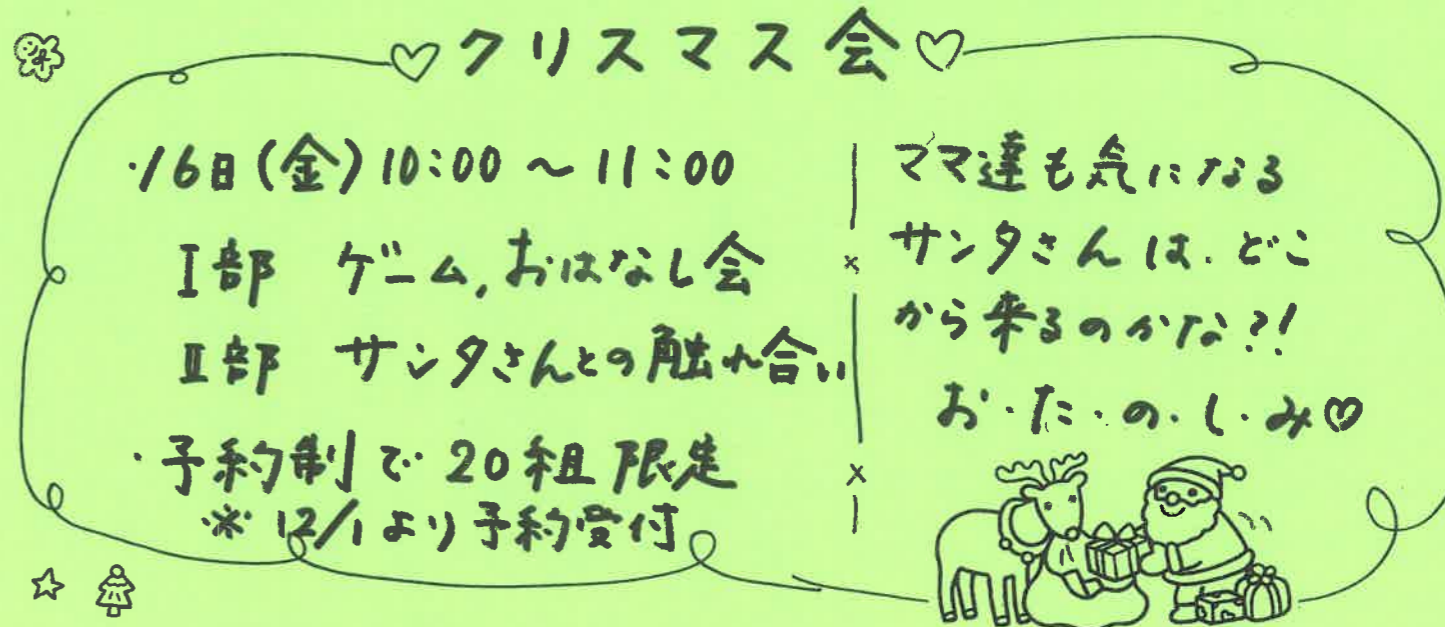 ♡クリスマス会♡
・16日(金)10:00〜11:00
Ⅰ部 ゲーム,おはなし会
Ⅱ部 サンタさんとの触れ合い
・予約制で20組限定
※12/1より予約受付
ママ達も気になる
サンタさんは、どこ
から来るのかな?!
お・た・の・し・み♡